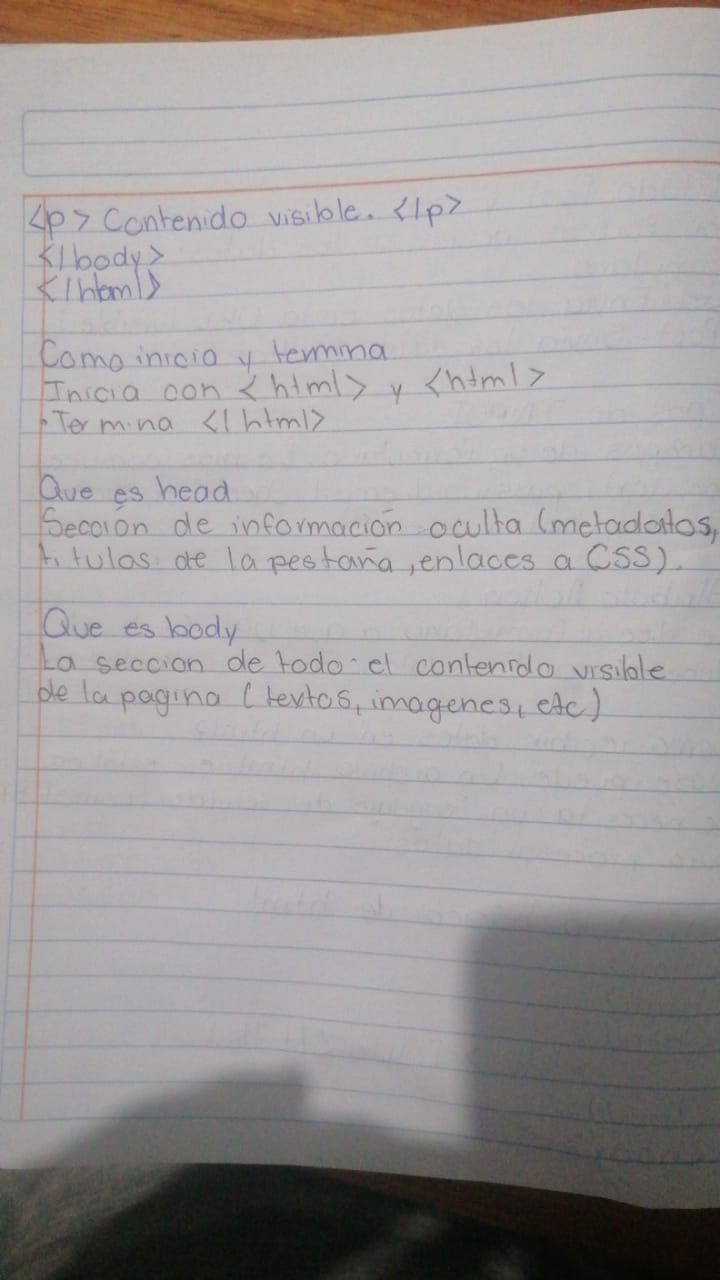 <p> Contenido visible. </p>
</body>
</html>
Como inicio y termina
Inicia con <html> y <html>
• Termina </html>
Que es head
Sección de información oculta (metadatos,
titulos de la pestaña, enlaces a CSS).
Que es body
La seccion de todo el contenido visible
de la pagina (textos, imagenes, etc)